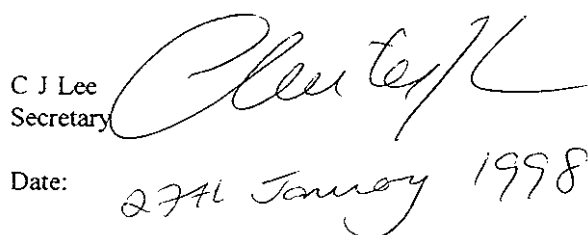 C J Lee
Secretary
Date: 27th January 1998